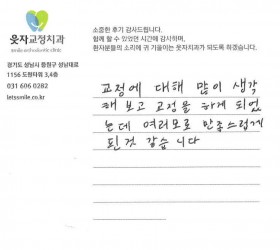 소중한 후기 감사드립니다.
함께 할 수 있었던 시간에 감사하며,
환자분들의 소리에 귀 기울이는 웃자치과가 되도록 하겠습니다.
웃자교정치과
smile orthodontic clinic
경기도 성남시 중원구 성남대로
1156 도원타워 3,4층
031 606 0282
letssmile.co.kr
교정에 대해 많이 생각
해보고 교정을 하게 되었
는데 여러모로 만족스럽게
된것 같습니다